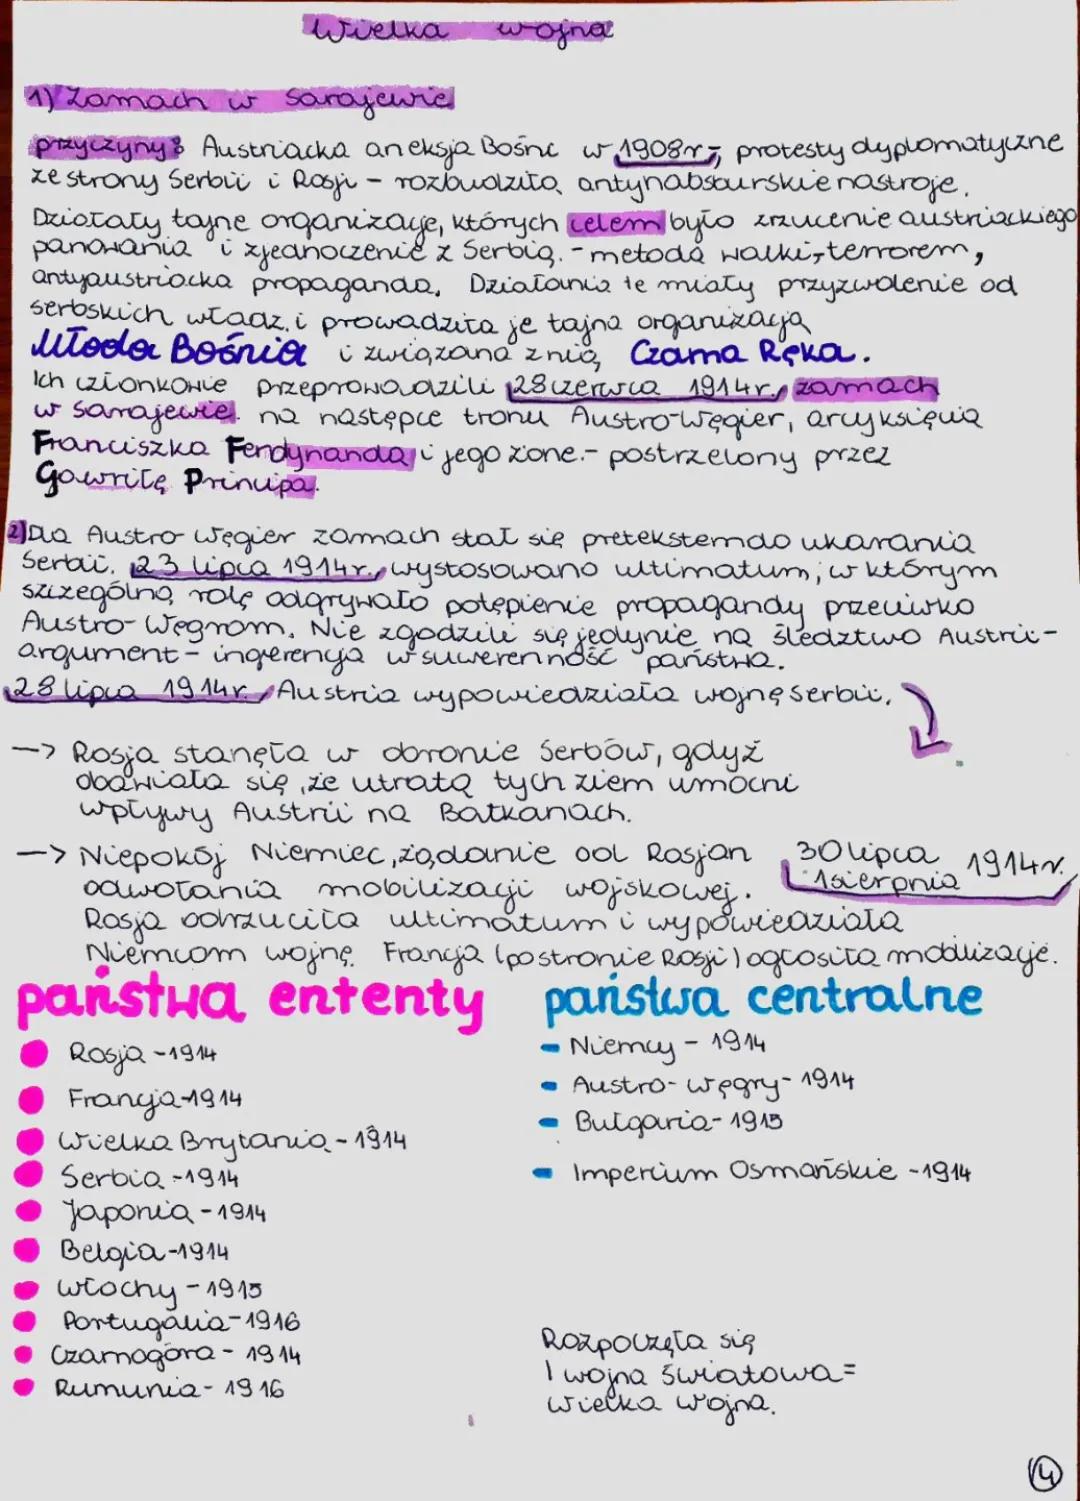 Wielka wojna
1) Zamach w Sarajewie
przyczyny: Austriacka aneksja Bośni w 1908r - protesty dyplomatyczne
ze strony Serbii i Rosji - rozbudziło antyhabsburskie nastroje.
Działały tajne organizacje, których celem było zrzucenie austriackiego
panowania i zjednoczenie z Serbią. - metodą walki, terrorem,
antyaustriacką propagandą. Działania te miały przyzwolenie od
serbskich władz. i prowadziła je tajna organizacja
Młoda Bośnia i związana z nią Czarna Ręka.
Ich członkowie przeprowadzili 28 czerwca 1914r. zamach
w Sarajewie na następcę tronu Austro-Węgier, arcyksięcia
Franciszka Ferdynanda i jego żonę. - postrzelony przez
Gawriłę Principa.
2) Dla Austro-Węgier zamach stał się pretekstem do ukarania
Serbii. 23 lipca 1914r. wystosowano ultimatum, w którym
szczególną rolę odgrywało potępienie propagandy przeciwko
Austro-Węgrom. Nie zgodzili się jedynie na śledztwo Austrii -
argument - ingerencja w suwerenność państwa.
28 lipca 1914r. Austria wypowiedziała wojnę Serbii.
-> Rosja stanęła w obronie Serbów, gdyż
obawiała się, że utrata tych ziem umocni
wpływy Austrii na Bałkanach.
-> Niepokój Niemiec, żądanie od Rosjan 30 lipca 1914r.
odwołania mobilizacji wojskowej. 1 sierpnia
Rosja odrzuciła ultimatum i wypowiedziała
Niemcom wojnę. Francja (po stronie Rosji) ogłosiła mobilizację.
państwa ententy
Rosja - 1914
Francja - 1914
Wielka Brytania - 1914
Serbia - 1914
Japonia - 1914
Belgia - 1914
Włochy - 1915
Portugalia - 1916
Czarnogóra - 1914
Rumunia - 1916
państwa centralne
- Niemcy - 1914
- Austro-Węgry - 1914
- Bułgaria - 1915
- Imperium Osmańskie - 1914
Rozpoczęła się
I wojna światowa =
Wielka Wojna.
4